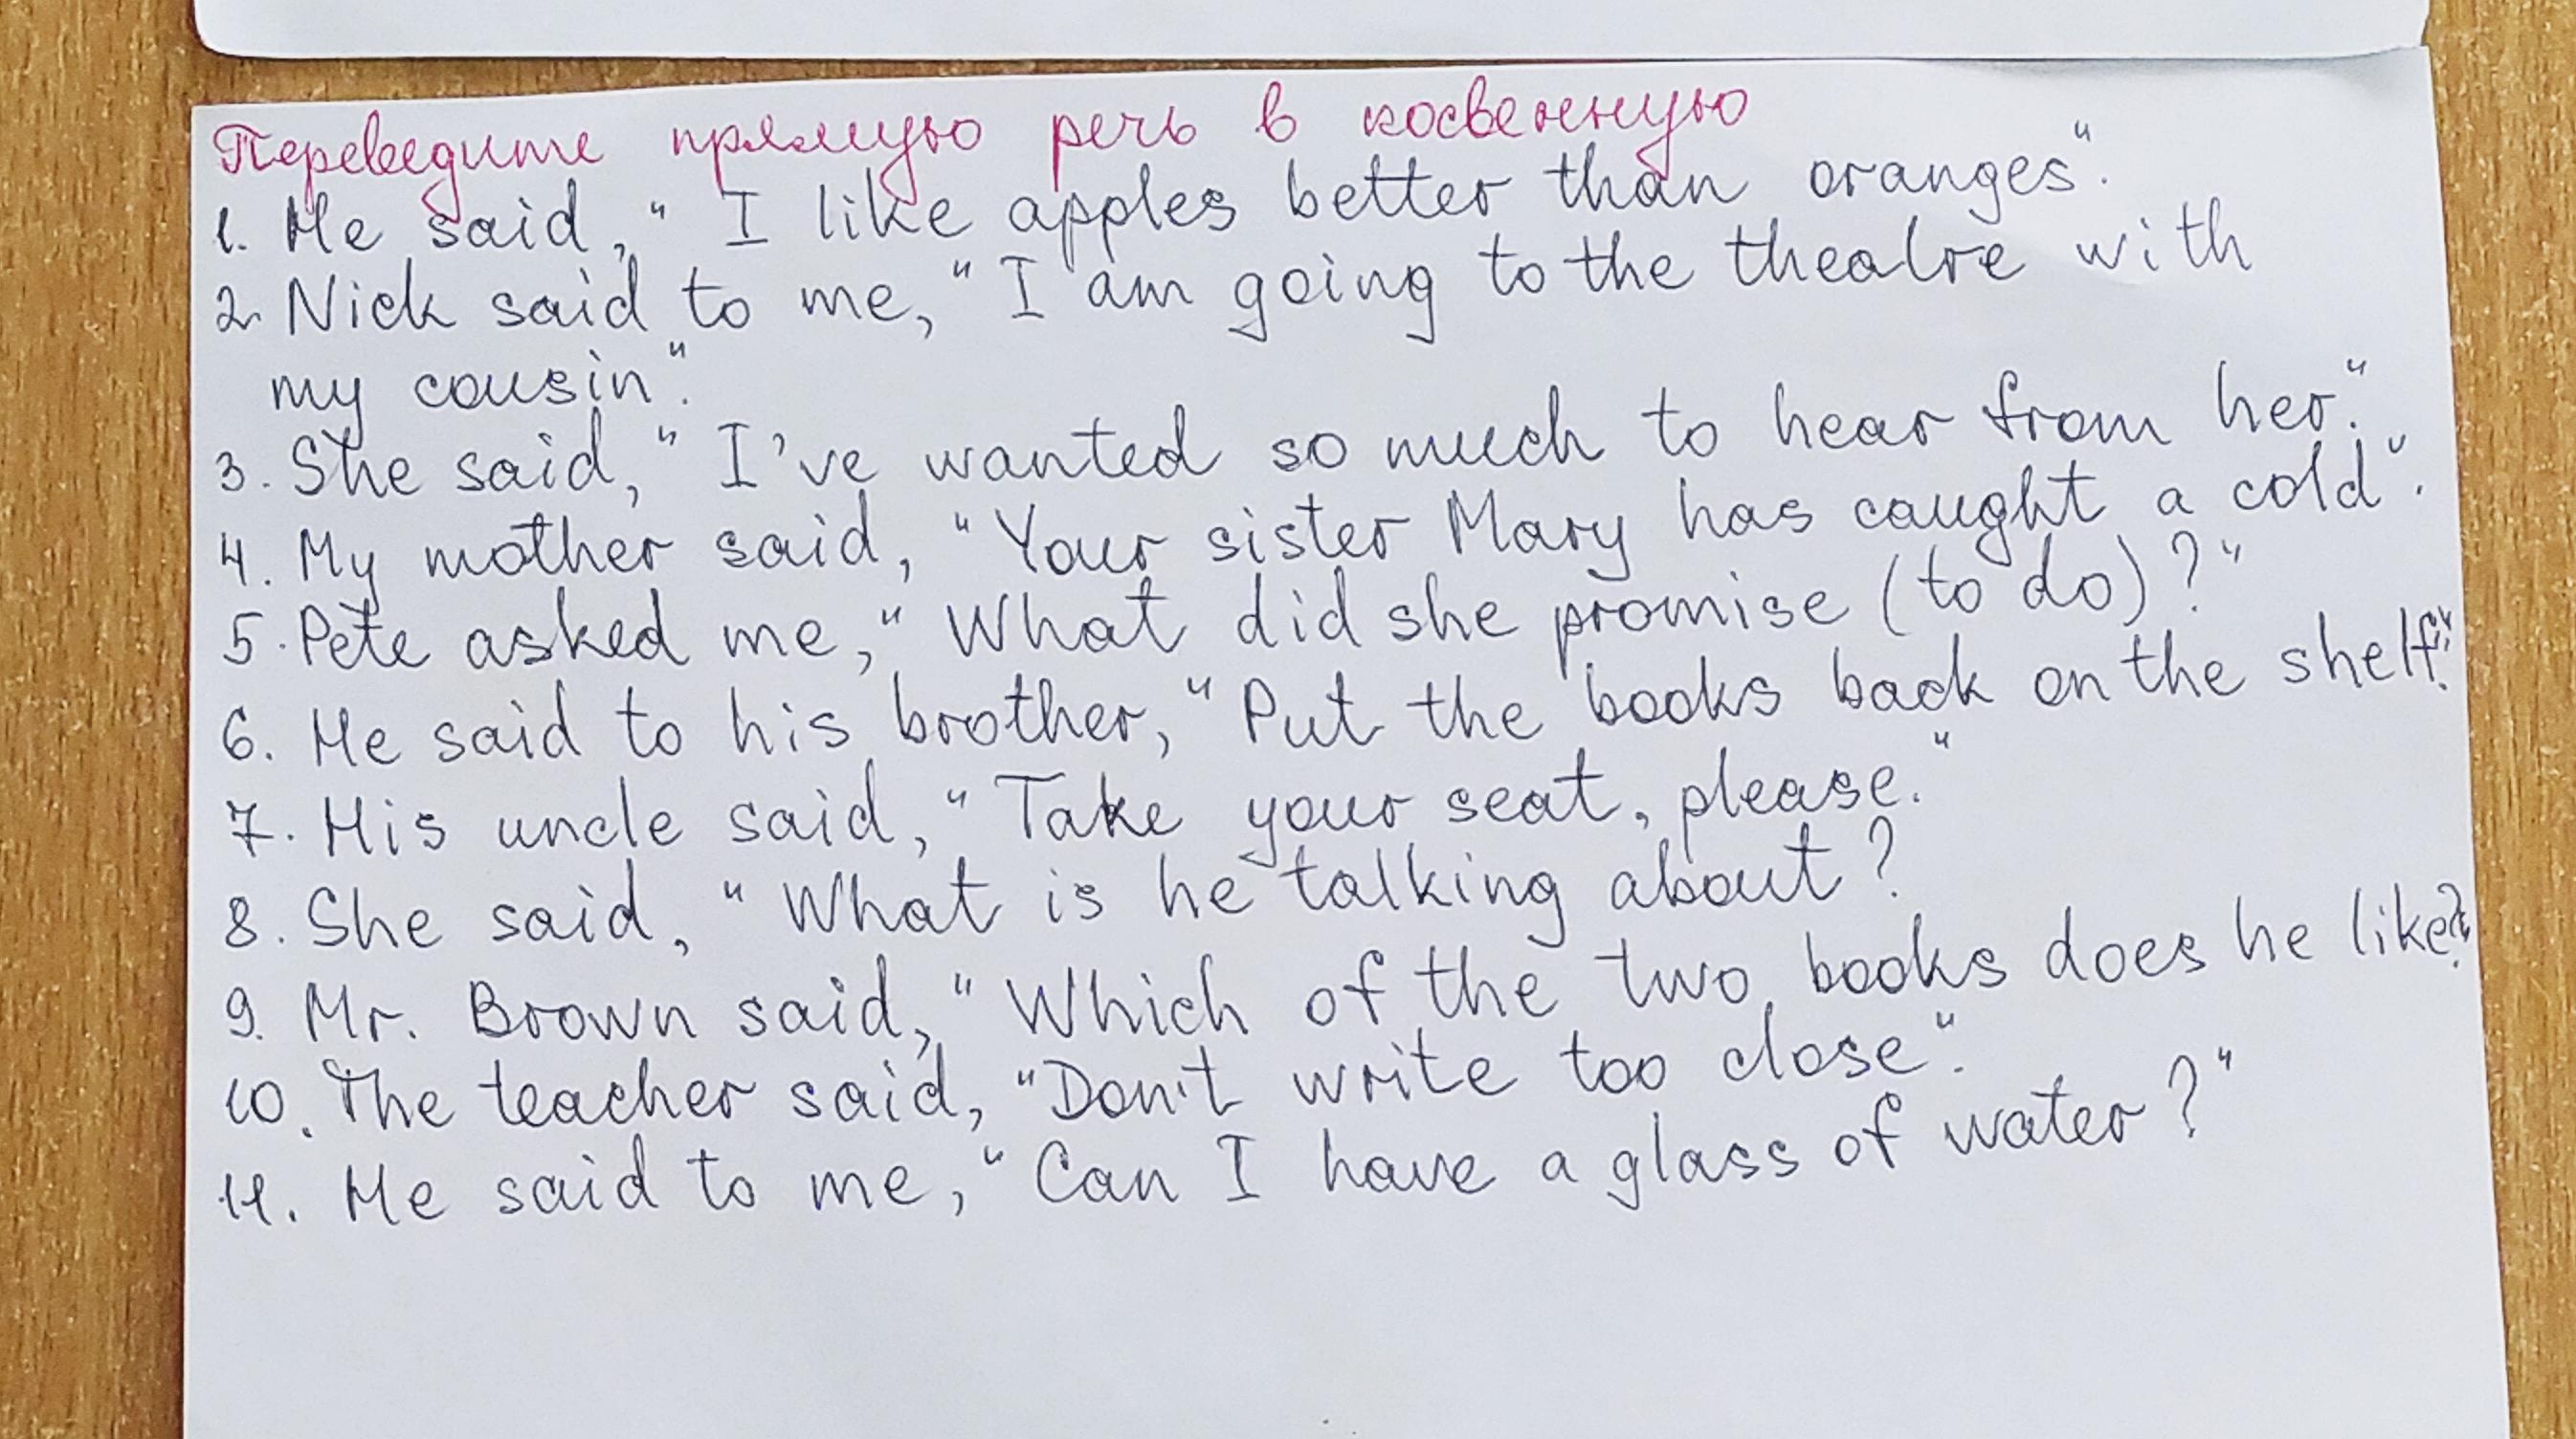 Переведите прямую речь в косвенную
1. He said, " I like apples better than oranges".
2. Nick said to me, "I am going to the theatre with
my cousin".
3. She said, " I've wanted so much to hear from her."
4. My mother said, "Your sister Mary has caught a cold".
5. Pete asked me, "What did she promise (to do)?"
6. He said to his brother, "Put the books back on the shelf".
7. His uncle said, "Take your seat, please."
8. She said, "What is he talking about?
9. Mr. Brown said, "Which of the two books does he like?"
10. The teacher said, "Don't write too close".
11. He said to me, "Can I have a glass of water?"